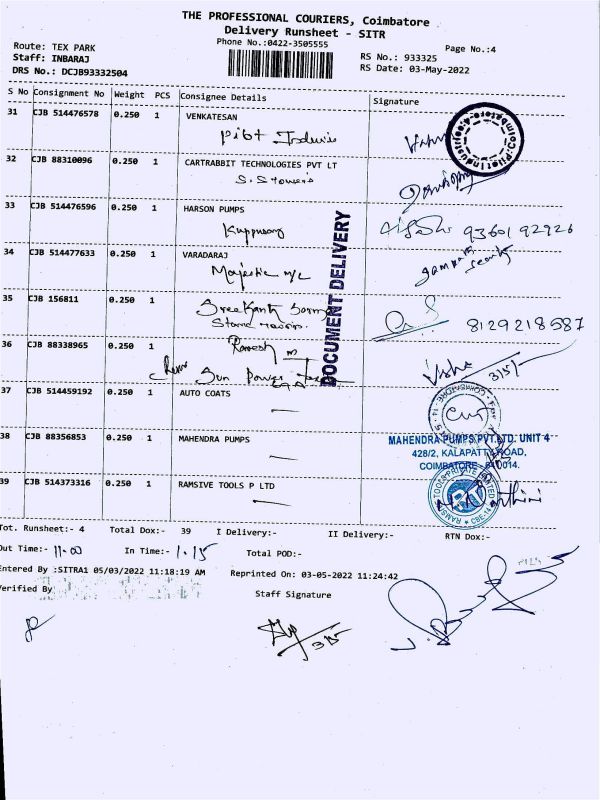 THE PROFESSIONAL COURIERS, Coimbatore
Delivery Runsheet - SITR
Phone No.:0422-3505555
Page No.:4
Route: TEX PARK
Staff: INBARAJ
DRS No.: DCJB93332504
RS No.: 933325
RS Date: 03-May-2022
S No Consignment No Weight PCS Consignee Details Signature
31 CJB 514476578 0.250 1 VENKATESAN
32 CJB 88310096 0.250 1 CARTRABBIT TECHNOLOGIES PVT LT
33 CJB 514476596 0.250 1 HARSON PUMPS
9360192926
34 CJB 514477633 0.250 1 VARADARAJ
Majestic m/c
35 CJB 156811 0.250 1 Sreekanth
8129218587
36 CJB 88338965 1 Ramesh m
Sun Power
3/5/-
37 CJB 514459192 0.250 1 AUTO COATS
38 CJB 88356853 0.250 1 MAHENDRA PUMPS
39 CJB 514373316 0.250 1 RAMSIVE TOOLS P LTD
DOCUMENT DELIVERY
MAHENDRA PUMPS PVT.LTD. UNIT 4
428/2, KALAPATTY ROAD,
COIMBATORE-641014.
Tot. Runsheet:- 4 Total Dox:- 39 I Delivery:- II Delivery:- RTN Dox:-
Out Time:- 11.00 In Time:- 1.15 Total POD:-
Entered By :SITRA1 05/03/2022 11:18:19 AM Reprinted On: 03-05-2022 11:24:42
Verified By
Staff Signature